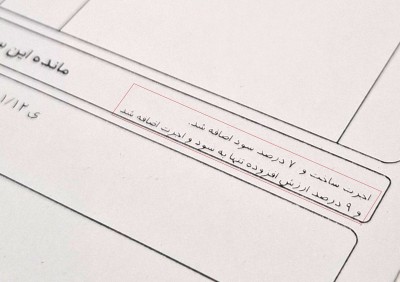 مانده این
ی ۱/۱۲
اجرت ساخت و ۷ درصد سود اضافه شد.
و ۹ درصد ارزش افزوده تنها به سود و اجرت اضافه شد